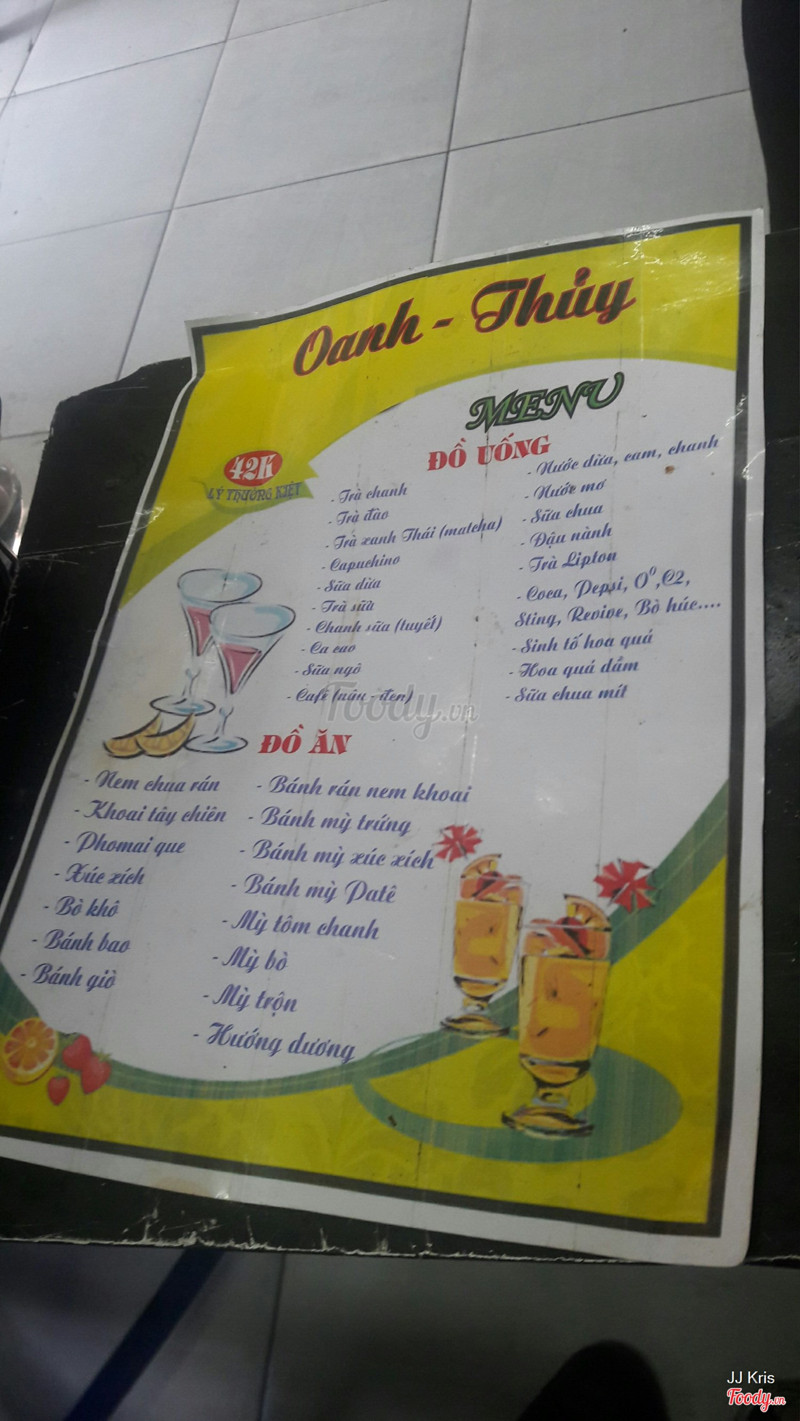 Oanh - Thủy
MENU
42K
LÝ THƯỜNG KIỆT
ĐỒ UỐNG
- Trà chanh
- Trà đào
- Trà xanh Thái (matcha)
- Capuchino
- Sữa dừa
- Trà sữa
- Chanh sữa (tuyết)
- Ca cao
- Sữa ngô
- Café (nâu - đen)
- Nước dừa, cam, chanh
- Nước mơ
- Sữa chua
- Đậu nành
- Trà Lipton
- Coca, Pepsi, O⁰, C2,
Sting, Revive, Bò húc....
- Sinh tố hoa quả
- Hoa quả dầm
- Sữa chua mít
ĐỒ ĂN
- Nem chua rán
- Khoai tây chiên
- Phomai que
- Xúc xích
- Bò khô
- Bánh bao
- Bánh giò
- Bánh rán nem khoai
- Bánh mỳ trứng
- Bánh mỳ xúc xích
- Bánh mỳ Patê
- Mỳ tôm chanh
- Mỳ bò
- Mỳ trộn
- Hướng dương
Foody.vn
JJ Kris
Foody.vn